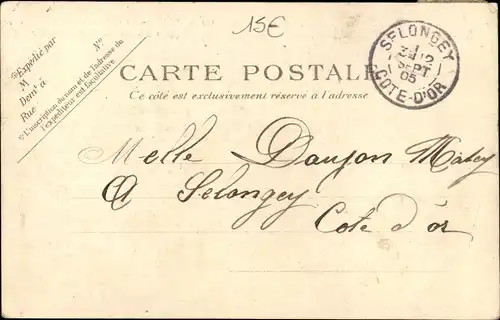 15€
SELONGEY
12
SEPT
05
COTE-D'OR
*Expédié par
M
Demt à
Rue N°
*L'inscription du nom et de l'adresse de
l'expéditeur est facultative
CARTE POSTALE
Ce côté est exclusivement réservé à l'adresse
Melle Daujon
A Selongey
Cote d'or